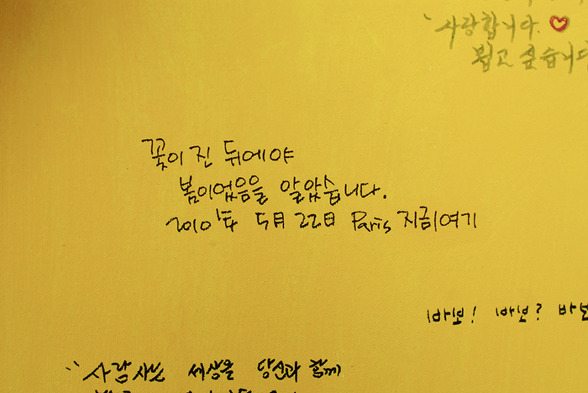 사랑합니다. ♡
뵙고 싶습니다
꽃이 진 뒤에야
봄이었음을 알았습니다.
2010년 5月 22日 Paris 지금여기
바보! 바보? 바보
"사람사는 세상을 당신과 함께